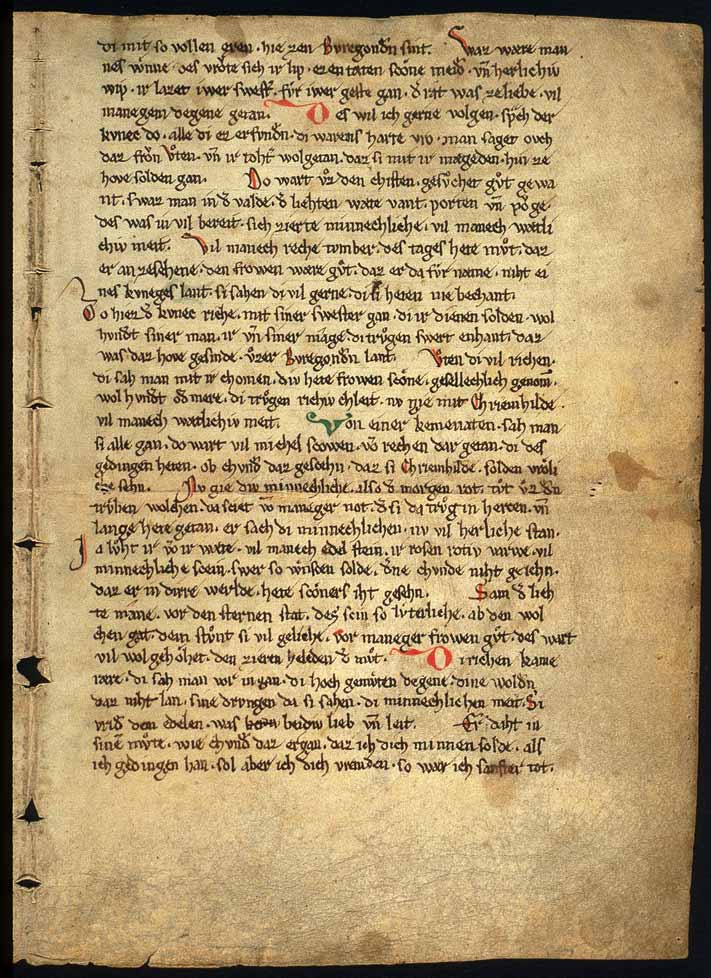 di mit so vollen eren · hie zen Buregondn̄ sint. Waz wære man
nes wnne · des vröte sich ir lip · ez entæten scöne meid̄ · vn̄ herlichiv
wip · ir lazet iwer swest̄ · fvr iwer geste gan · d̄ rat was ze liebe · vil
manegem degene getan. Des wil ich gerne volgen · sp̄ch der
kvnec do · alle di ez erfvndn̄ · di warens harte vro · man saget ovch
daz fröͮn Vͦten · vn̄ ir toht̄ wolgetan · daz si mit ir mægeden · hin ze
hove solden gan. Do wart vz den chisten · gesvͦchet gvͦt gewa
nt · swaz man in d̄ valde · d̄ liehten wæte vant · porten vn̄ pöͮge ·
des was in vil bereit · sich zierte minnechliche · vil manech wætli
chiv meit. Vil manech reche tvmber · des tages hete mvͦt · daz
er an zesehene · den frowen wære gvͦt · daz er da fvr næme · niht ei
nes kvneges lant · si sahen di vil gerne · di si heten nie bechant.
Do hiez d̄ kvnec riche · mit siner swester gan · di ir dienen solden · wol
hvndt̄ siner man · ir vn̄ siner mage · di trvͦgen swert enhant · daz
was daz hove gesinde · vͦzer Buregondn̄ lant. Vͦten di vil richen ·
di sah man mit ir chomen · div hete frowen scöne · gesellechlich genom̄ ·
wol hvndt̄ od̄ mere · di trvͦgen richiv chleit · ov gie mit Chriemhilde ·
vil manech wætlichiv meit. Von einer kemenaten · sah man
si alle gan · do wart vil michel
gedingen heten · ob chvnd̄ daz gescehn · daz si Chriemhilde · solden vröli
che sehn. Nv gie div minnechliche · also d̄ morgen rot · tvͦt vz den
trvͤben wolchen · da sciet vo maneger not · d̄ si da trvͦg in hercen · vn̄
lange hete getan · er sach di minnechlichen · nv vil herliche stan.
Ia lvͦht ir vo ir wæte · vil manech edel stein · ir rosen rotiv varwe · vil
minnechliche scein · swer so wnscen solde · d̄ne chvnde niht geiehn ·
daz er in dirre werlde · hete scöners iht gesehn. Sam d̄ lieh
te mane · vor den sternen stat · des scin so lvterliche · ab den wol
chen gat · dem stvͦnt si vil geliche · vor maneger frowen gvͦt · des wart
vil wol gehöhet · den zieren helden d̄ mvͦt. Di richen kame
rære · di sah man vor in gan · di hoch gemvͦten degene · dine woldn̄
daz niht lan · sine drvngen da si sahen · di minnechlichen meit · Si
vrid̄ dem edelen · was beidiv lieb vn̄ leit. Er daht in
sinē mvͦte · wie chvnd̄ daz ergan · daz ich dich minnen solde · als
ich gedingen han · sol aber ich dich vremden · so wær ich sanfter tot.